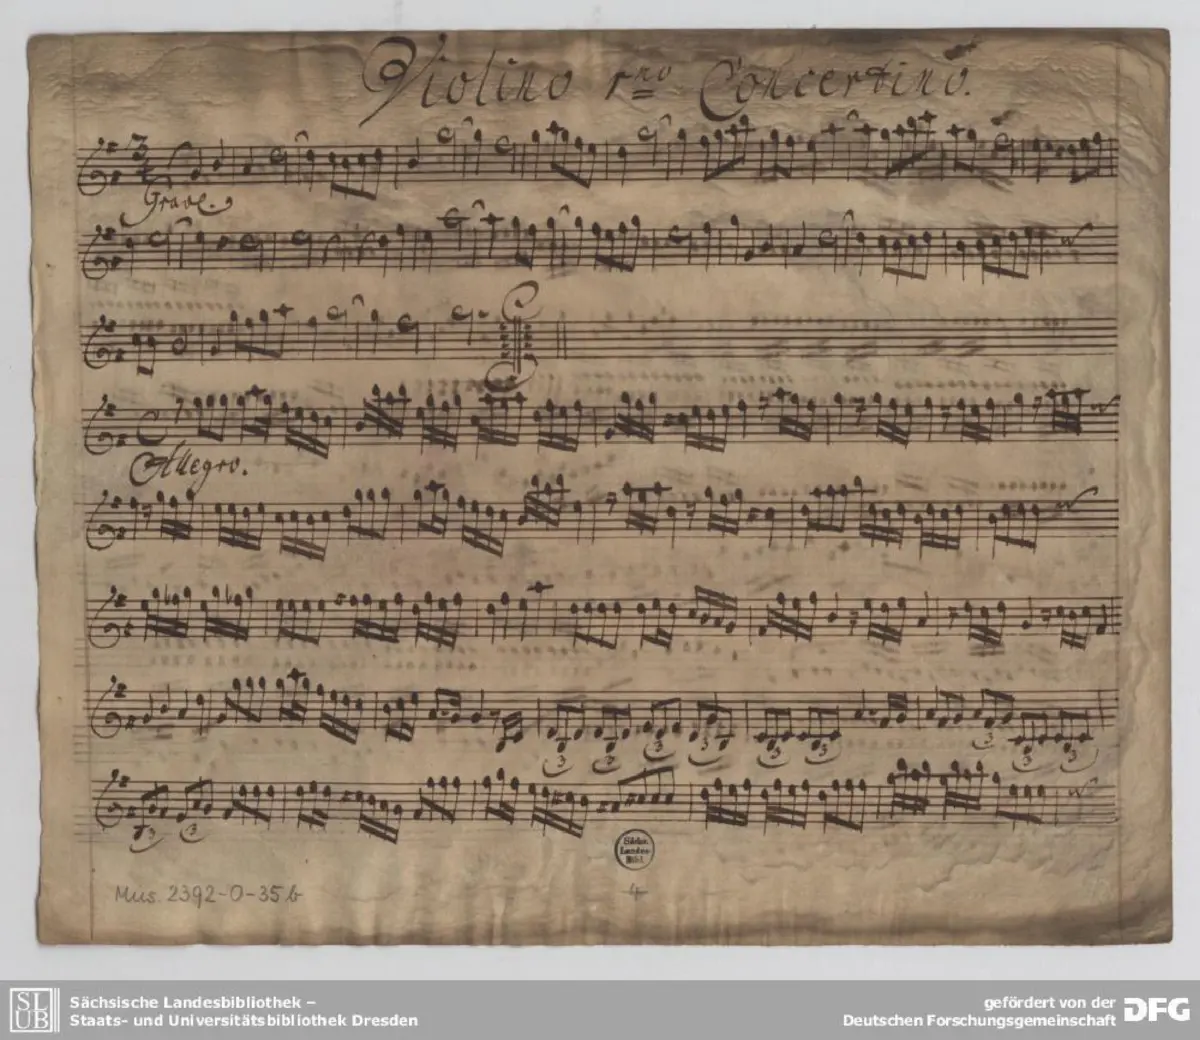 Violino 1mo Concertino.
3
Grave.
Allegro.
3 3 3 3 3 3 3 3 3
3 3
Sächs. Landes-Bibl.
Mus. 2392-O-35b
4
SLUB
Sächsische Landesbibliothek –
Staats- und Universitätsbibliothek Dresden
gefördert von der
Deutschen Forschungsgemeinschaft
DFG